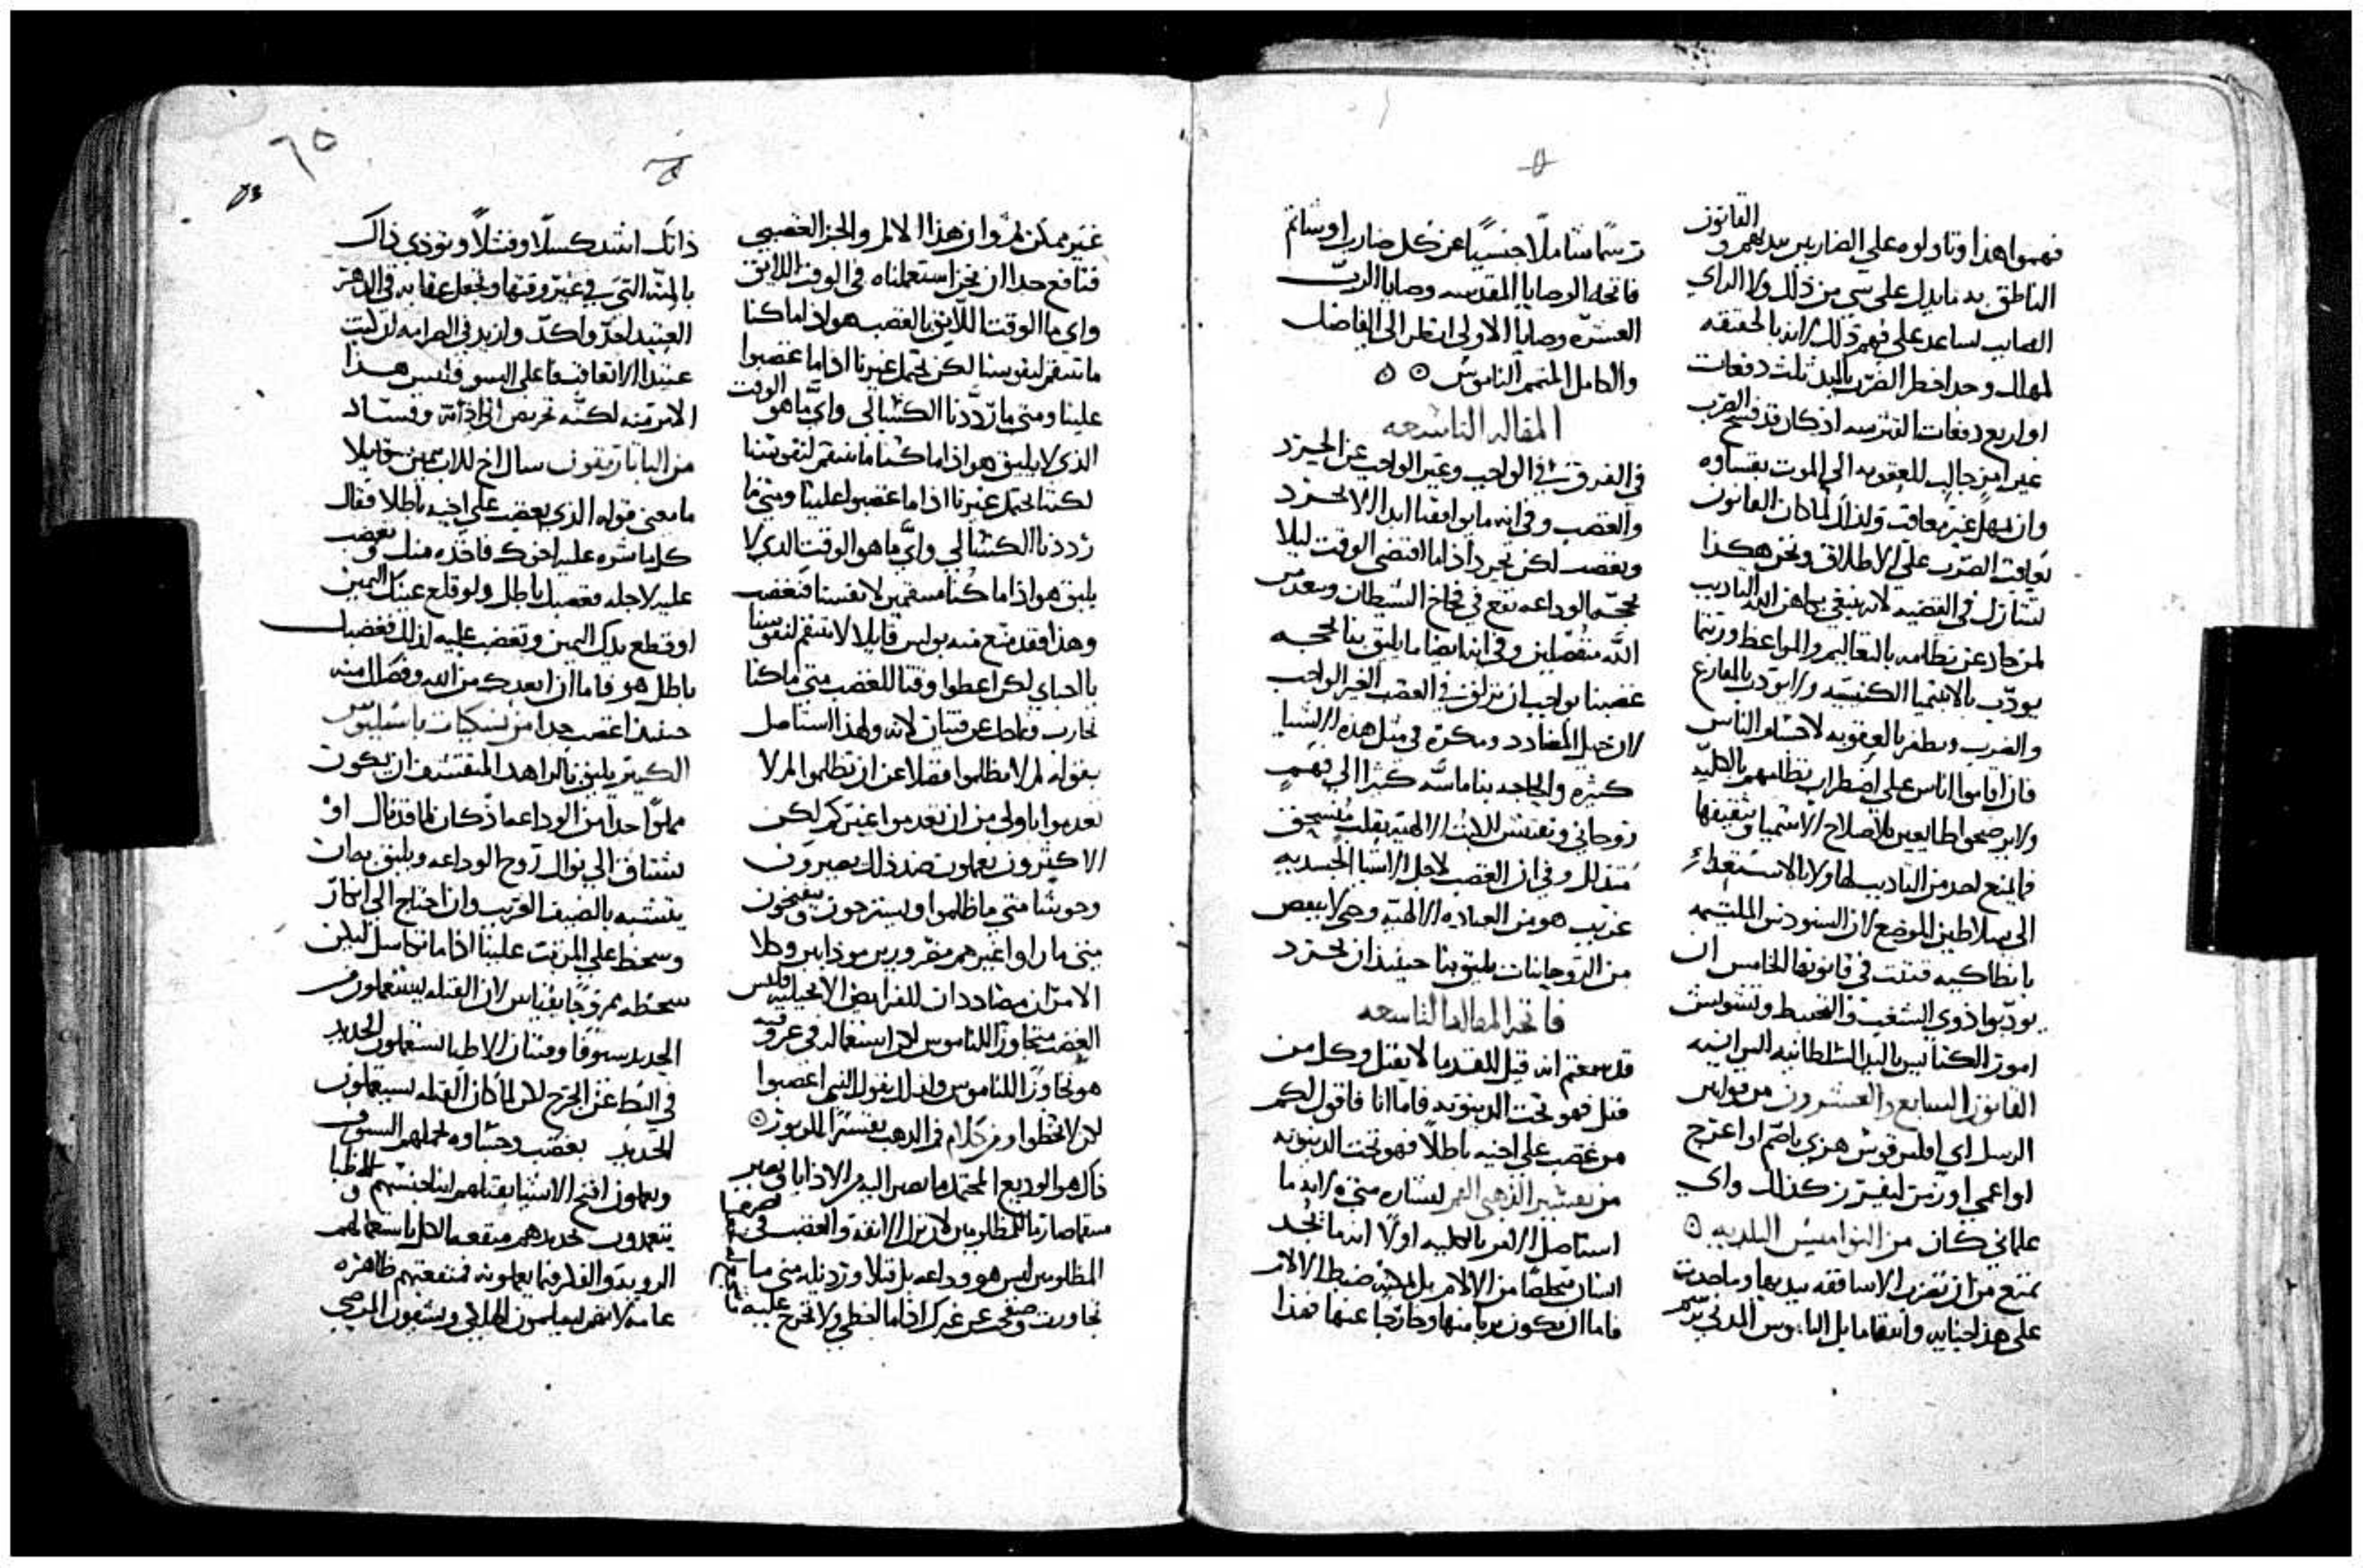 فهموا هذا وتاولوه على الضاربين بيديهم والقانون
الناطق به ما يدل على شي من ذلك ولا الراي
الصايب يساعد على فهم ذلك لانه بالحقيقه
لمهلك وحد اخطر الضرب باليد ثلث دفعات
او اربع دفعات
غير امين جالب للعقوبه الى الموت بقساوه
وان يهمل غير معاقب ولذلك لما كان القانون
يعاقب الضرب على الاطلاق ونحن هكذا
لمن حاد عن نظامه بالتعاليم والمواعظ وربتما
يودب بالابتيميا الكنسيه ولا يودب بالمقارع
والضرب
فان اقاموا اناس على اضطراب نظامهم بالكليه
ولا يرضحوا طايعين لاصلاح الابتيميا وتثقيفها
فما يمنع احد من التاديب لها ولا بالاستعداء
الى سلاطين الموضع لان السينودس الملتيمه
بانطاكيه قننت في قانونها الخامس ان
يودبوا ذوي الشغب والتخبط وتشويش
امور الكنايس باليد السلطانيه البرانيه
القانون السابع والعشرون من قوانين
الرسل اي افليريقوس هزي باصم او اعرج
او اعمى او زمن ليفرز كذلك واي
علماني كان من النواميس البلديه
تمنع من ان تفرن الاساقفه بيديها وما حدت
على هذا جنايه وانتقاما بل الناموس المدني يرسم
رسما شاملا جنسيا عن كل ضارب او شاتم
فاتحه الوصايا المقدسه وصايا الرب
العشره وصايا الاولى انظر الى الفاضل
والكامل المتمم الناموس
المقاله التاسعه
في الفرق في الواجب وغير الواجب عن الحرد
والغضب وفي انه ما يوافقنا ابدا الا نحرد
ونغضب لكن نحرد اذا ما اقتضى الوقت ليلا
بحجة الوداعه نقع في فخاخ الشيطان ونعدمن
الله منفصلين وفي اننا ايضا ما يليق بنا بحجه
غضبنا بواجب ان نزلق في الغضب الغير الواجب
لان حيل المضادد ومكره في مثل هذه الاشيا
كثيره والحاجه بنا ماسه كثيرا الى فهم
روحاني وتفتيش للكتب الالهيه بقلب منسحق
متذلل وفي ان الغضب لاجل الاشيا الجسديه
غريب هو من العباده الالهيه وهي لا ببعض
من الروحانيات يليق بنا حينيذ ان نحرد
فاتحة المقاله التاسعه
قد سمعتم انه قيل للقدما لا يقتل وكل من
قتل فهو تحت الدينونه فاما انا فاقول لكم
من غضب على اخيه باطلا فهو تحت الدينونه
من تفسير الذهبي الفم لبشاره متى لانه ما
استاصل الالم بالكليه اولا انه ما نجد
انسان متخلصا من الالام بل يمكنه ضبط الالام
فاما ان يكون بريا منها وخارجا عنها فهذا
غير ممكن ثم وان هذا الالم والحرد الغضبي
فنافع جدا ان نحن استعملناه في الوقت اللايق
واي ما الوقت اللايق بالغضب هو اذا ما كنا
ما ننتقم لنفوسنا لكن نحتمل غيرنا اذا ما غضبوا
علينا ومتى ما رددنا الكسالى واي ما هو الوقت
الذي لا يليق هو اذا ما كنا ما ننتقم لنفوسنا
لكننا نحتمل غيرنا اذا ما غضبوا علينا ومتى ما
رددنا الكسالى واي ما هو الوقت الذي لا
يليق هو اذا ما كنا منتقمين لانفسنا فنغضب
وهذا فقد منع منه بولس قايلا لا تنتقم لنفوسنا
يا احباي لكن اعطوا وقتا للغضب متى ما كنا
نحارب
بقوله لم لا تظلموا فضلا عن ان تظلموا لم لا
تعدموا باولى من ان تعدموا غيركم لكن
الاكثرون يعملون ضد ذلك يصيرون
وحوشا متى ما ظلموا ويسترخون وينفسحون
متى ما راوا غيرهم مقهورين موذايين وكلا
الامران مضاددان للفرايض الانجيليه فليس
الغضب متجاوزا للناموس لان استعماله في غير وقته
هو تجاوزا للناموس ولذلك يقول النبي اغضبوا
لكن لا تخطوا ومن كلام فم الذهب بتفسير المزمور
ذاك هو الوديع المحتمل ما يصير اليه من الاذايا ويصير
المظلومين ليس هو وداعه بل فشلا ورذيله متى ما
تجاوزت وصفحت عن غيرك اذا ما اخطى ولا تحرج عليه
ذاتك اشد كسلا وفشلا وتوذي ذاك
العتيد اشد واكد وازيد في الصرامه
عتيدا الا تعاقب فاعلي السو فليس هذا
الامر منه لكنه تحريض الى اذيته وفساد
من البابا تيقون سال اخ للاب بيمين قايلا
ما معنى قوله الذي يغضب على اخيه باطلا فقال
كلما شره عليه اخوك فاخذه منك وتغضب
عليه لاجله فغضبك باطل ولو قلع عينك اليمين
او قطع يدك اليمين وتغضب عليه لذلك فغضبك
باطل هو فاما ان ابعدك من الله وفصلك منه
حينيذ اغضب جدا من نسكيات باسيليوس
الكبير يليق بالزاهد المتقشف ان يكون
مملوا جدا من الوداعه اذ كان اما قد نال او
يشتاق الى نوال روح الوداعه ويليق به ان
يتشبه بالضيف الغريب وان احتاج الى انكار
وسخط على المرتب علينا اذا ما تكاسل ليكن
سخطه ممزوجا بقياس لان القتله يستعملون
الحديد سيوفا وفتيان الاطبا يستعملون الحديد
في البط عن الجرح لكن لما كان القتله يستعملون
الحديد بغضب وحشاوه
ويعملون اقبح الاشيا بقتلهم ابنا جنسهم والاطبا
يتعمدون بحديدهم منفعه الكل باستعمالهم
الرويه والفكر فيما يعملونه فمنفعتهم ظاهره
عامه لانهم يخلصون الهلكى ويشفون المرضى